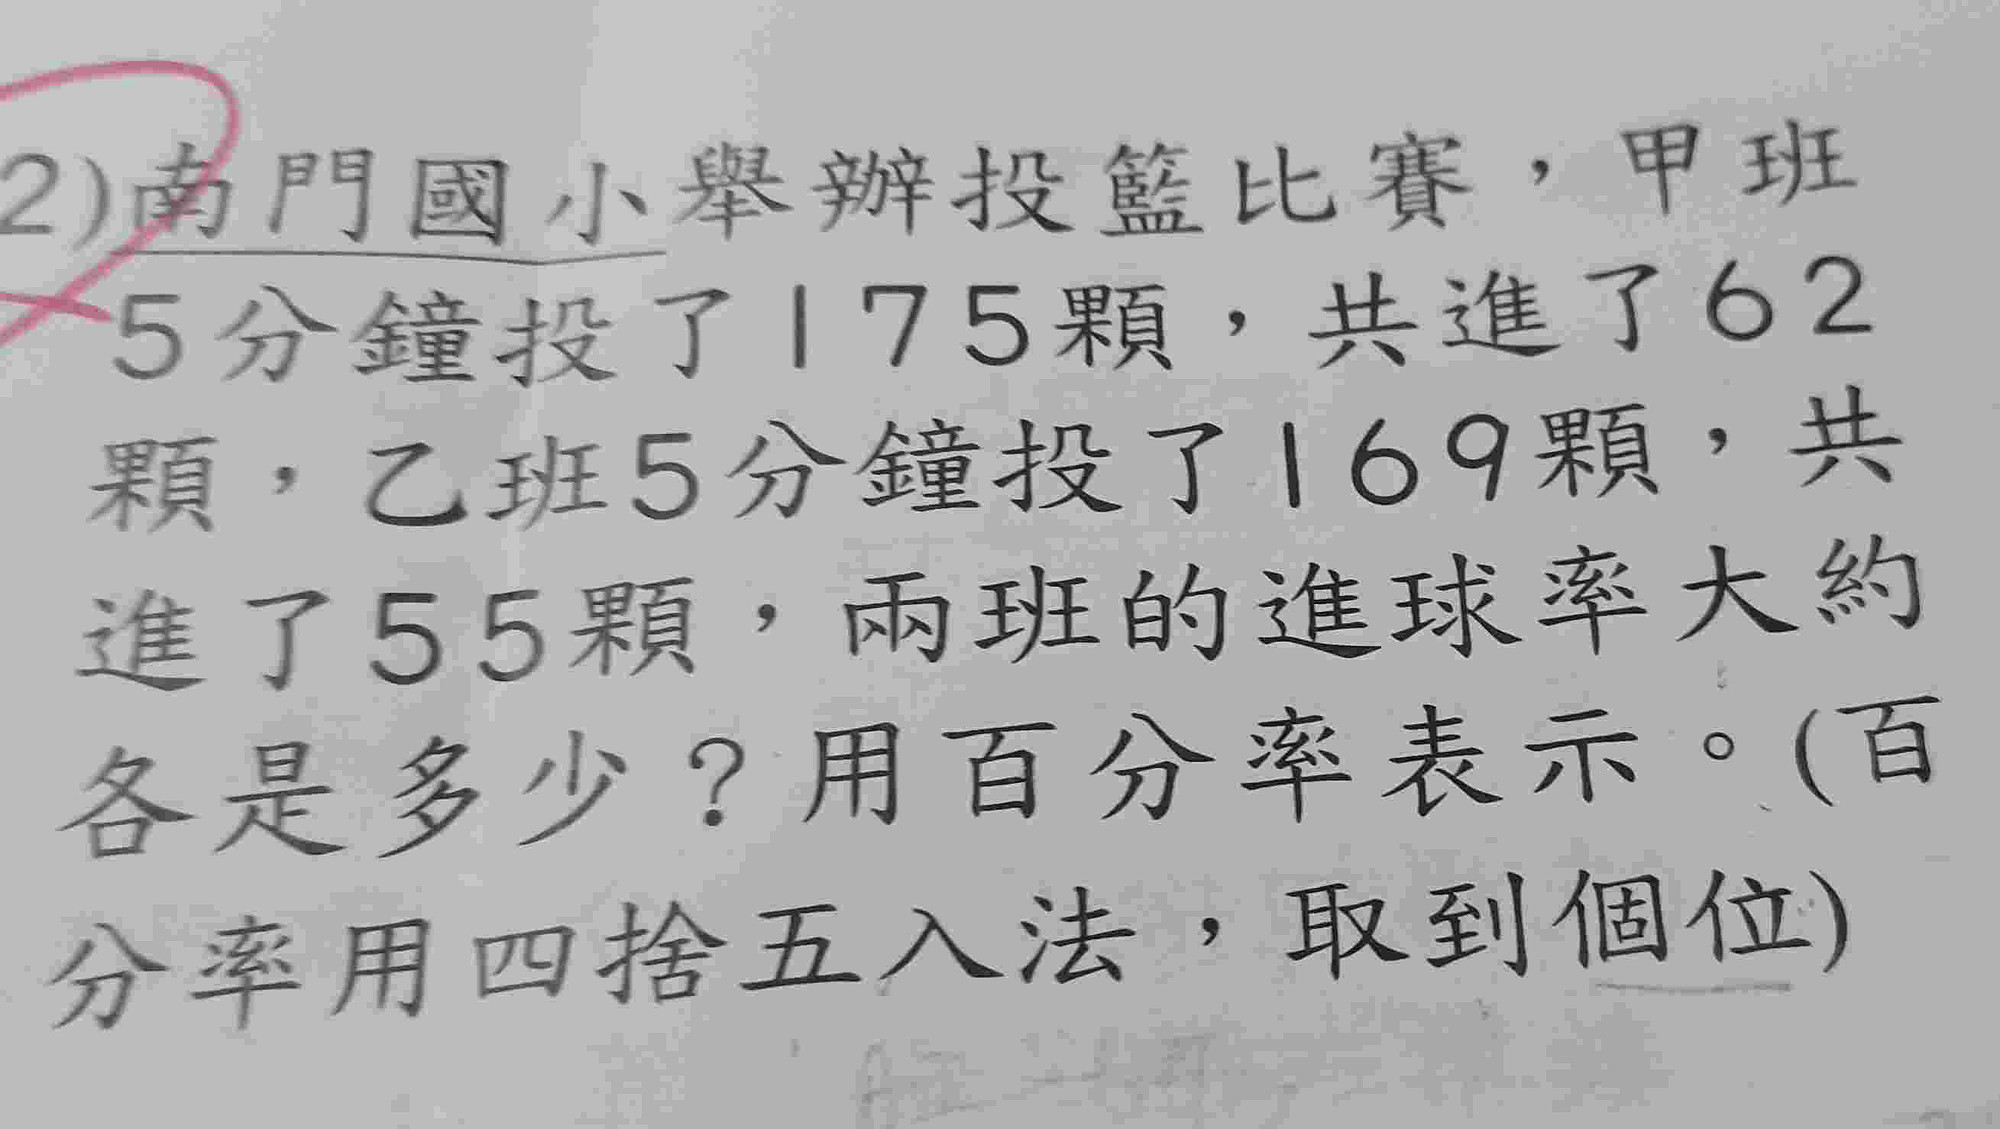 2)南門國小舉辦投籃比賽，甲班
5分鐘投了175顆，共進了62
顆，乙班5分鐘投了169顆，共
進了55顆，兩班的進球率大約
各是多少？用百分率表示。(百
分率用四捨五入法，取到個位)